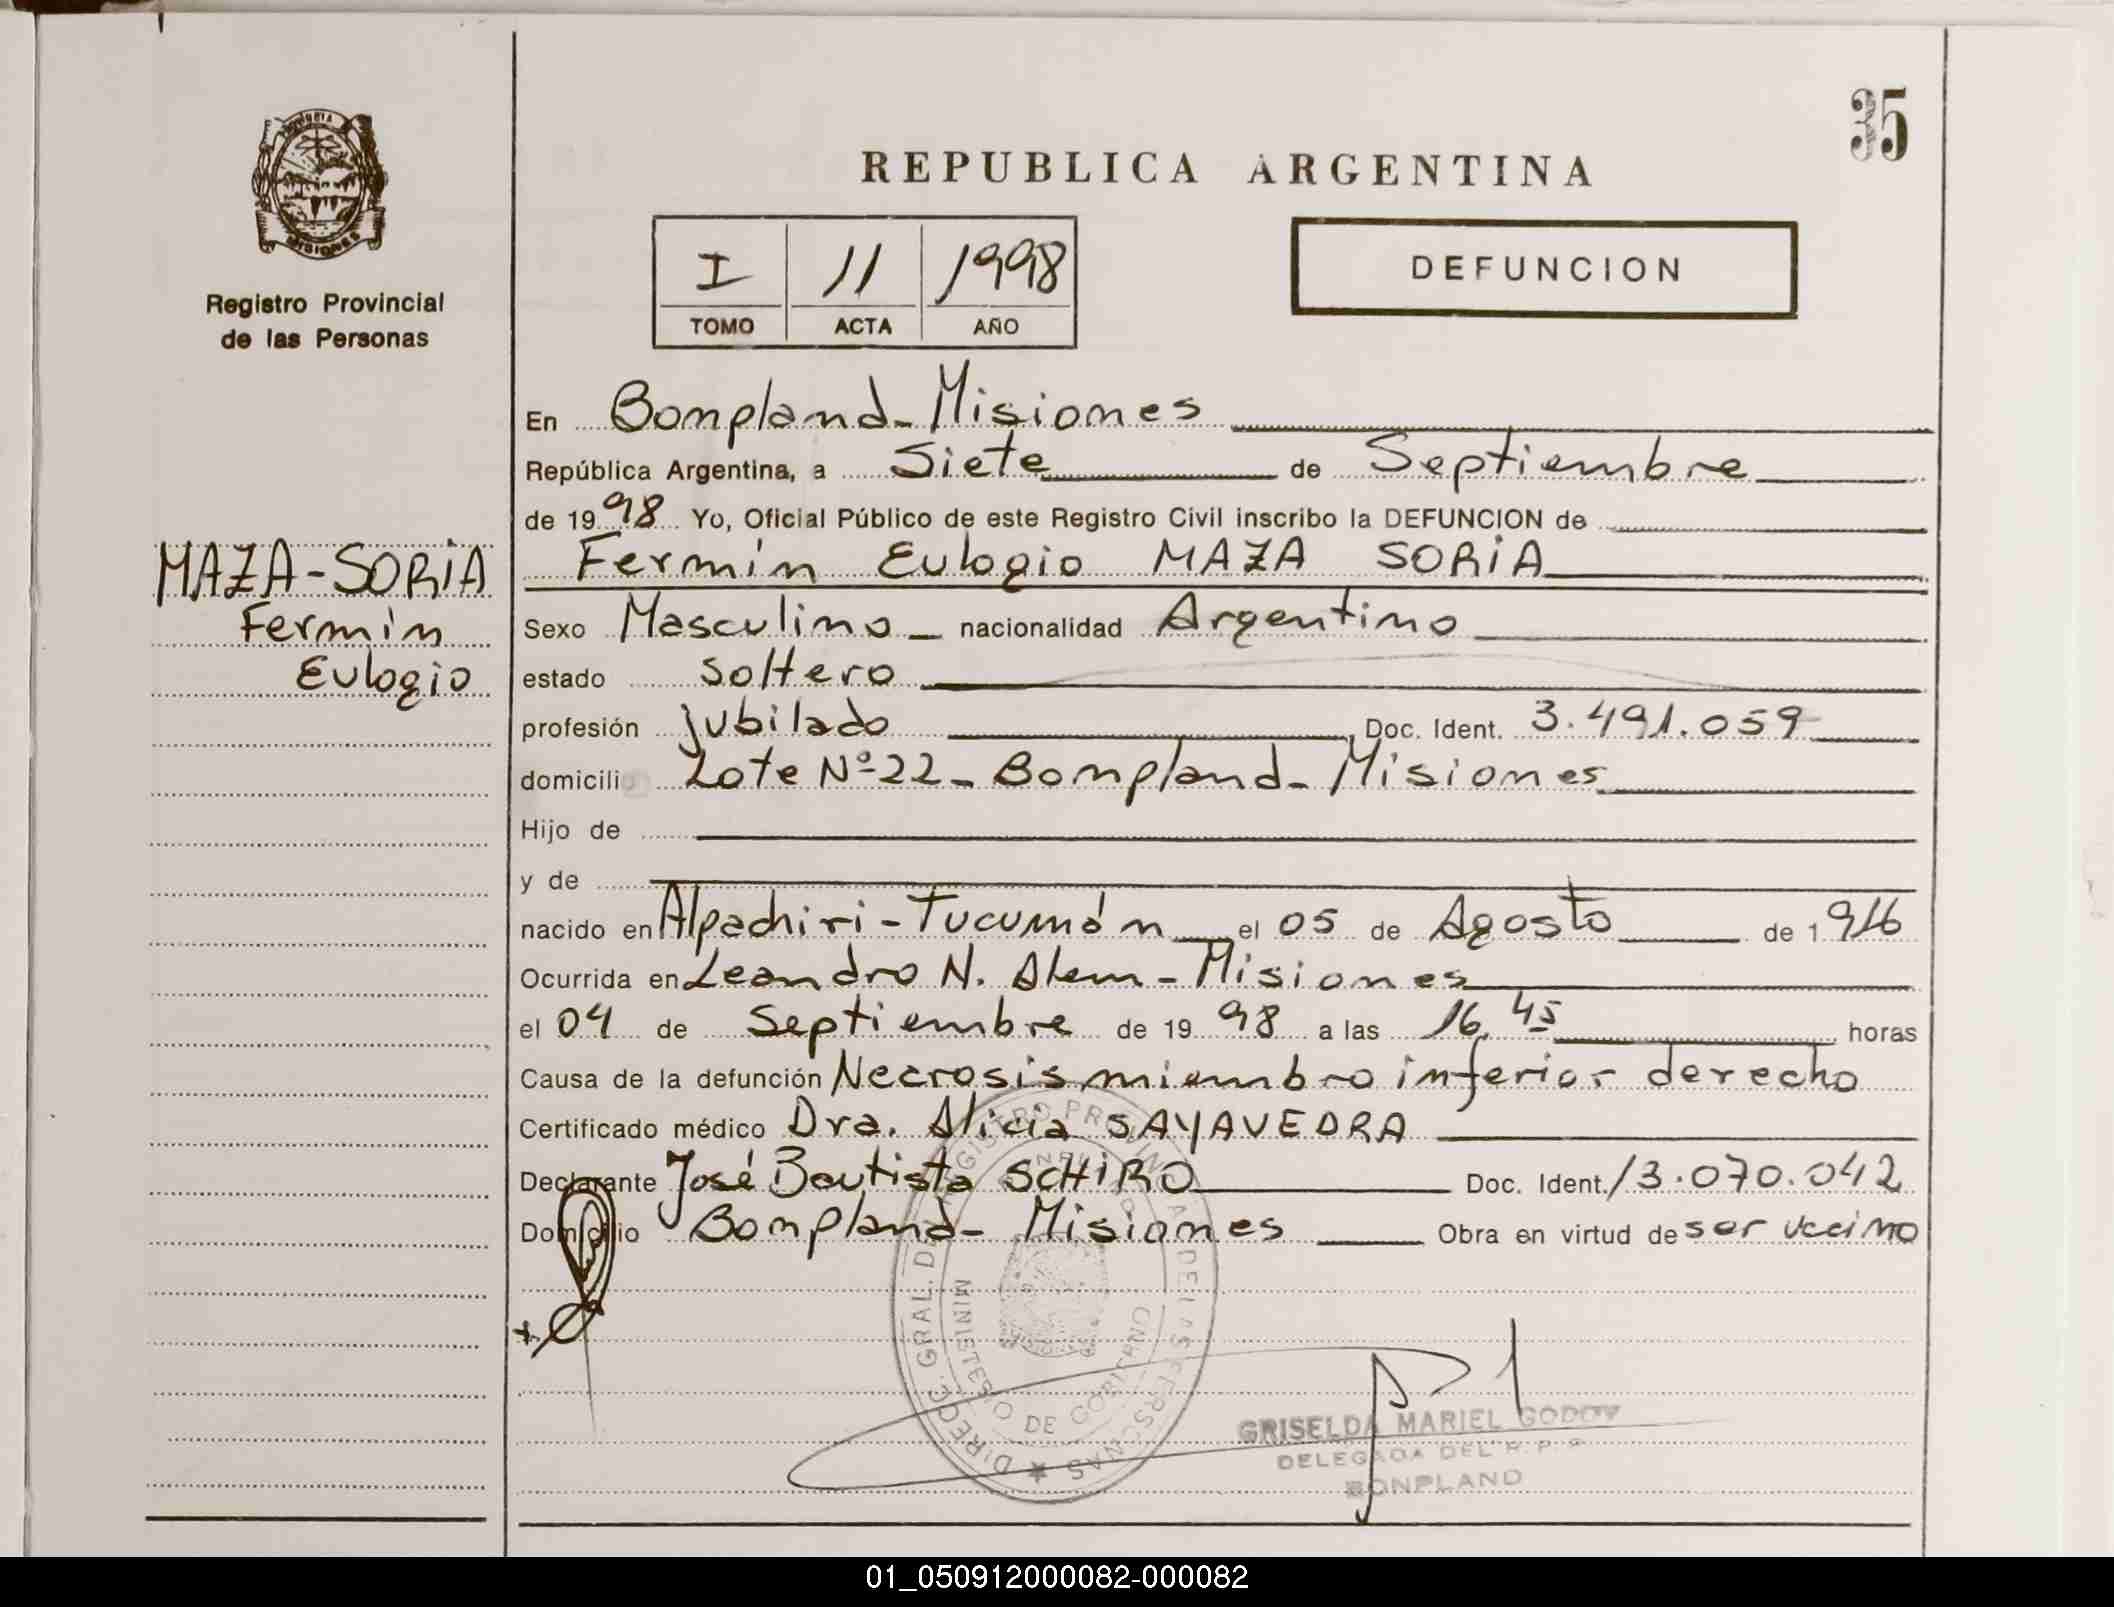 35
PROVINCIA
MISIONES
REPUBLICA ARGENTINA
Registro Provincial
de las Personas
I 11 1998
TOMO ACTA AÑO
DEFUNCION
En Bompland - Misiones
República Argentina, a Siete de Septiembre
de 1998 Yo, Oficial Público de este Registro Civil inscribo la DEFUNCION de
MAZA-SORIA
Fermín
Eulogio
Fermín Eulogio MAZA SORIA
Sexo Masculino nacionalidad Argentino
estado soltero
profesión jubilado, Doc. Ident. 3.491.059
domicilio Lote Nº 22 - Bompland - Misiones
Hijo de
y de
nacido en Alpachiri - Tucumán el 05 de Agosto de 1916
Ocurrida en Leandro N. Alem - Misiones
el 04 de Septiembre de 1998 a las 16,45 horas
Causa de la defunción Necrosis miembro inferior derecho
Certificado médico Dra. Alicia SAYAVEDRA
Declarante José Bautista SCHIRO Doc. Ident. 13.070.042
Domicilio Bompland - Misiones Obra en virtud de ser vecino
DIRECC. GRAL. DEL REGISTRO PROVINCIAL DE LAS PERSONAS
MINISTERIO DE GOBIERNO
GRISELDA MARIEL GODOY
DELEGADA DEL R. P. P.
BONPLAND
01_050912000082-000082